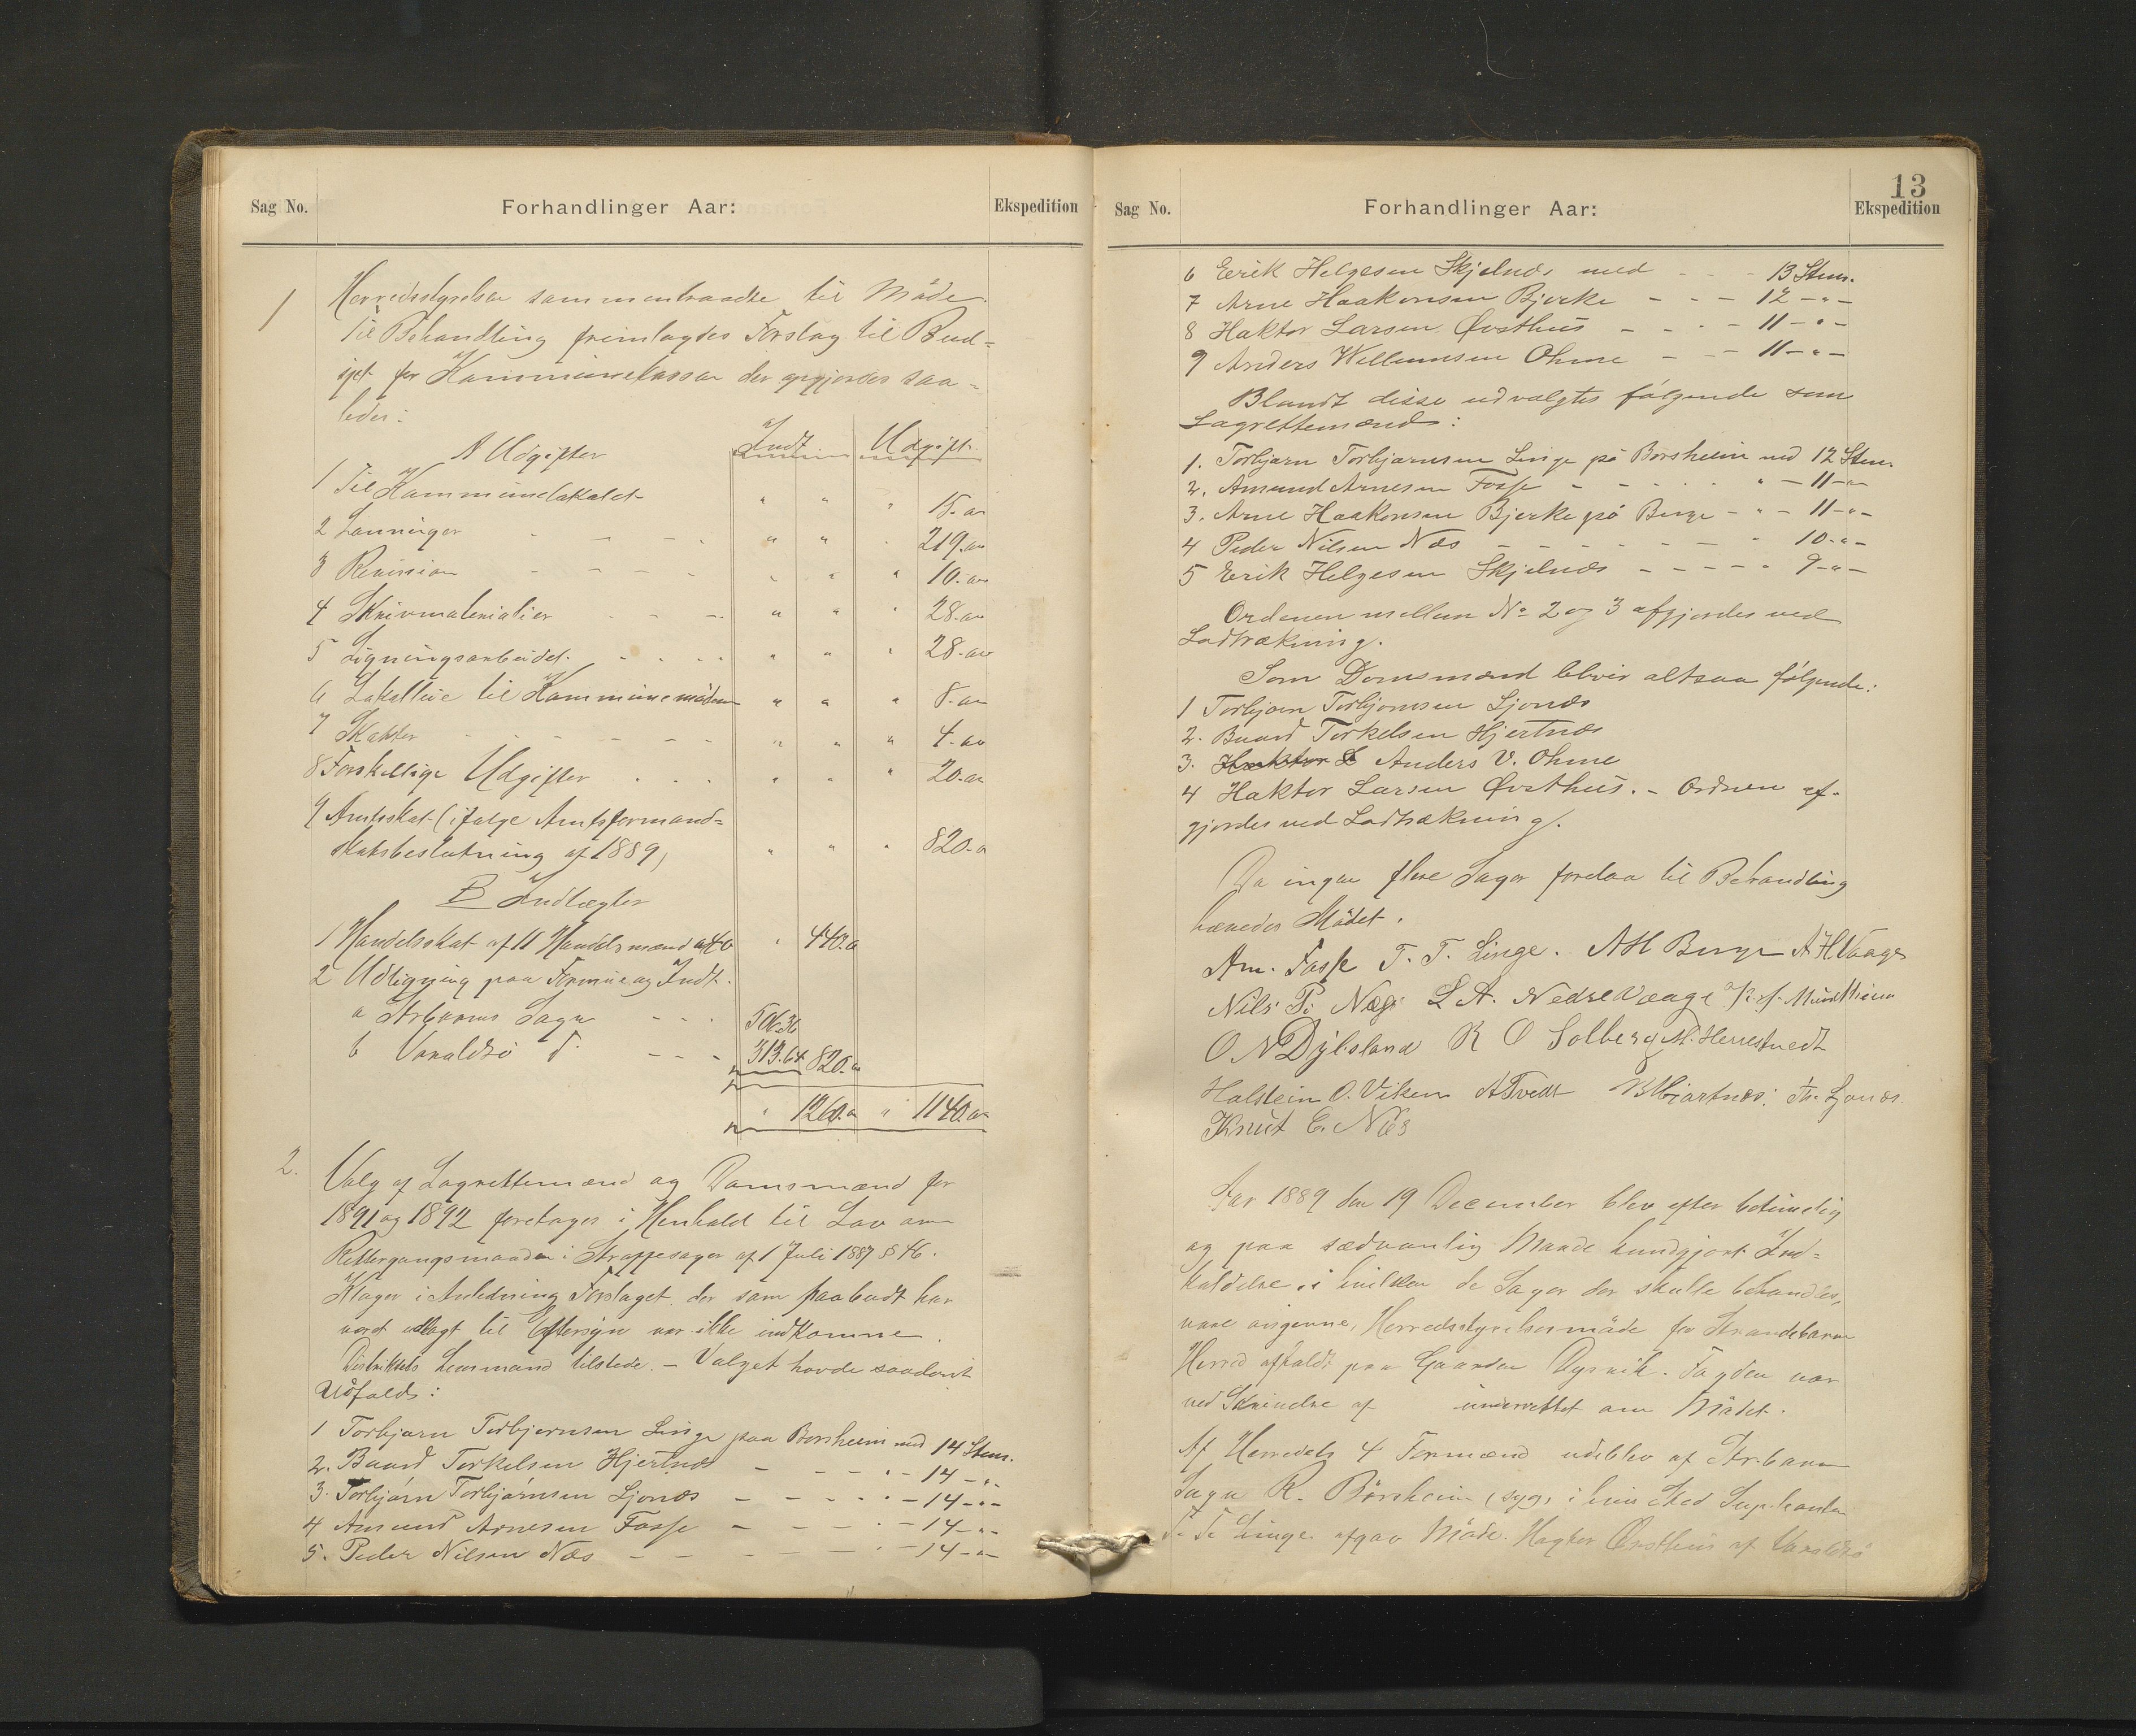 Sag No. Forhandlinger Aar: Ekspedition
1 Herredsstyrelsen sammentraadte til Møde.
Til Behandling fremlagdes Forslag til Bud=
sjet for Kommunekassen der opgjordes saa=
ledes:
A Udgifter Indt. Udgift.
1 Til Kommunelokalet " " " 15.00
2 Lønninger - - - - " " " 219.00
3 Revision - - - - " " " 10.00
4 Skrivmaterialier - - - " " " 28.00
5 Ligningsarbeidet - - - - " " " 28.00
6 Lokalleie til Kommunemøderne " " " 8.00
7 Skatter - - - - - - " " " 4.00
8 Forskellige Udgifter - - - " " " 20.00
9 Amtsskat (ifølge Amtsformand=
skabsbeslutning af 1889) " " " 820.00
B Indtægter
1 Handelsskat af 11 Handelsmænd a 40 " 440.00
2 Udligning paa Formue og Indt.
a Strbarms Sogn - - - 506.36
b Varaldsö d. - - - 313.64 820.00
" 1260.00 " 1140.00
2. Valg af Lagrettemænd og Domsmænd for
1891 og 1892 foretages i Henhold til Lov om
Rettergangsmaaden i Straffesager af 1 Juli 1887 § 46.
Klager i Anledning Forslaget der som paabudt har
været udlagt til Eftersyn var ikke indkomne.
Distriktets Lensmand tilstede. - Valget havde saadant
Udfald:
1 Torbjørn Torbjørnsen Linge paa Børsheim med 14 Stem.
2. Baard Torkelsen Hjertnæs - - - " - 14 - " -
3. Torbjørn Torbjørnsen Ljonæs - - - - " - 14 - " -
4 Amund Arnesen Fosse - - - " - 14 - " -
5. Peder Nilsen Næs - - - - - " - 14 - " -
13
Sag No. Forhandlinger Aar: Ekspedition
6 Eerik Helgesen Skjelnæs med - - - 13 Stem.
7 Arne Haakonsen Bjerke - - - 12 - " -
8 Haktor Larsen Øvsthus - - - - 11 - " -
9 Anders Willumsen Ohme - - - 11 - " -
Blandt disse udvalgtes følgende som
Lagrettemænd:
1. Torbjørn Torbjørnsen Linge på Børsheim med 12 Stem.
2. Amund Arnesen Fosse - - - - - " - 11 - " -
3. Arne Haakonsen Bjerke på Berge - " - 11 - " -
4 Peder Nilsen Næs - - - - - - - " 10 - " -
5 Eerik Helgesen Skjelnæs - - - - - " 9 - " -
Ordenen mellem No 2 og 3 afgjordes ved
Lodtrækning.
Som Domsmænd blvir altsaa følgende:
1 Torbjørn Torbjørnsen Ljonæs
2. Baard Torkelsen Hjertnæs
3. Haktor L Anders V. Ohme
4 Haktor Larsen Øvsthus. - Ordnen af-
gjordes ved Lodtrækning.
Da ingen flere Sager forelaa til Behandling
hævedes Mödet.
Am. Fosse T. T. Linge. A H Berge A H Vaage
Nils P. Næs L A. Nedrevaage
O N Dÿbsland R O Solberg M. Herrestvedt
Halstein O. Viken A Tvedt B Hjartnæs. Th. Ljonæs.
Knut E. Næs
Aar 1889 den 19 December blev efter betimelig
og paa sædvanlig Maade kundgjort Ind=
kaldelse, i hvilken de Sager der skulle behandles,
vare angivne, Herredsstyrelsesmøde for Strandebarm
Herred afholdt paa Gaarden Dysvik. Fogden var
ved Skrivelse af underrettet om Mødet.
Af Herredets 4 Formænd udeblev af Str.barm
Sogn R. Børsheim (syg) i hvis Sted Suppleanten
T. T. Linge afgav Møde. Hagtor Øvsthus af Varaldsö